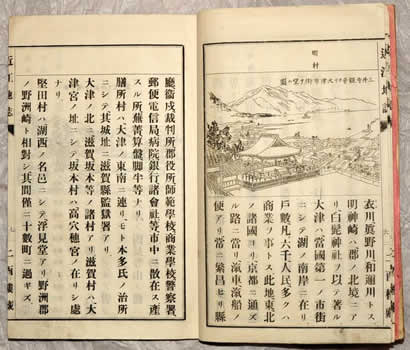 町村
三井寺觀音ヨリ大津市街ヲ望ムノ圖
衣川眞野川和邇川トス
明神崎ハ郡ノ北境ニア
リ白髭神社ヲ以テ著ル
大津ハ當國第一ノ市街
ニシテ湖ノ南岸ニ在リ
戸數凡六千人民多クハ
商業ヲ事トス此地東北
ノ諸國ヨリ京都ニ通ズ
ル路ニ當リ滊車滊船
便アリ常ニ繁昌セリ縣
廳衞戍裁判所郡役所師範學校商業學校警察署
郵便電信局病院銀行諸會社等市中ニ散在ス產
スル所蕪菁算盤脚半等ナリ
膳所村ハ大津ノ東南ニ連リ、モト本多氏ノ治所
ニシテ其城址ニ滋賀縣監獄署アリ
大津ノ北ニ滋賀坂本等ノ諸村アリ滋賀村ハ大
津宮ノ址ニシテ坂本村ハ高穴穗宮ノ在リシ處
ナリ
堅田村ハ湖西ノ名邑ニシテ浮見堂アリ野洲郡
ノ野洲崎ト相對シ其間僅ニ十數町ニ過ギズ
近江地誌